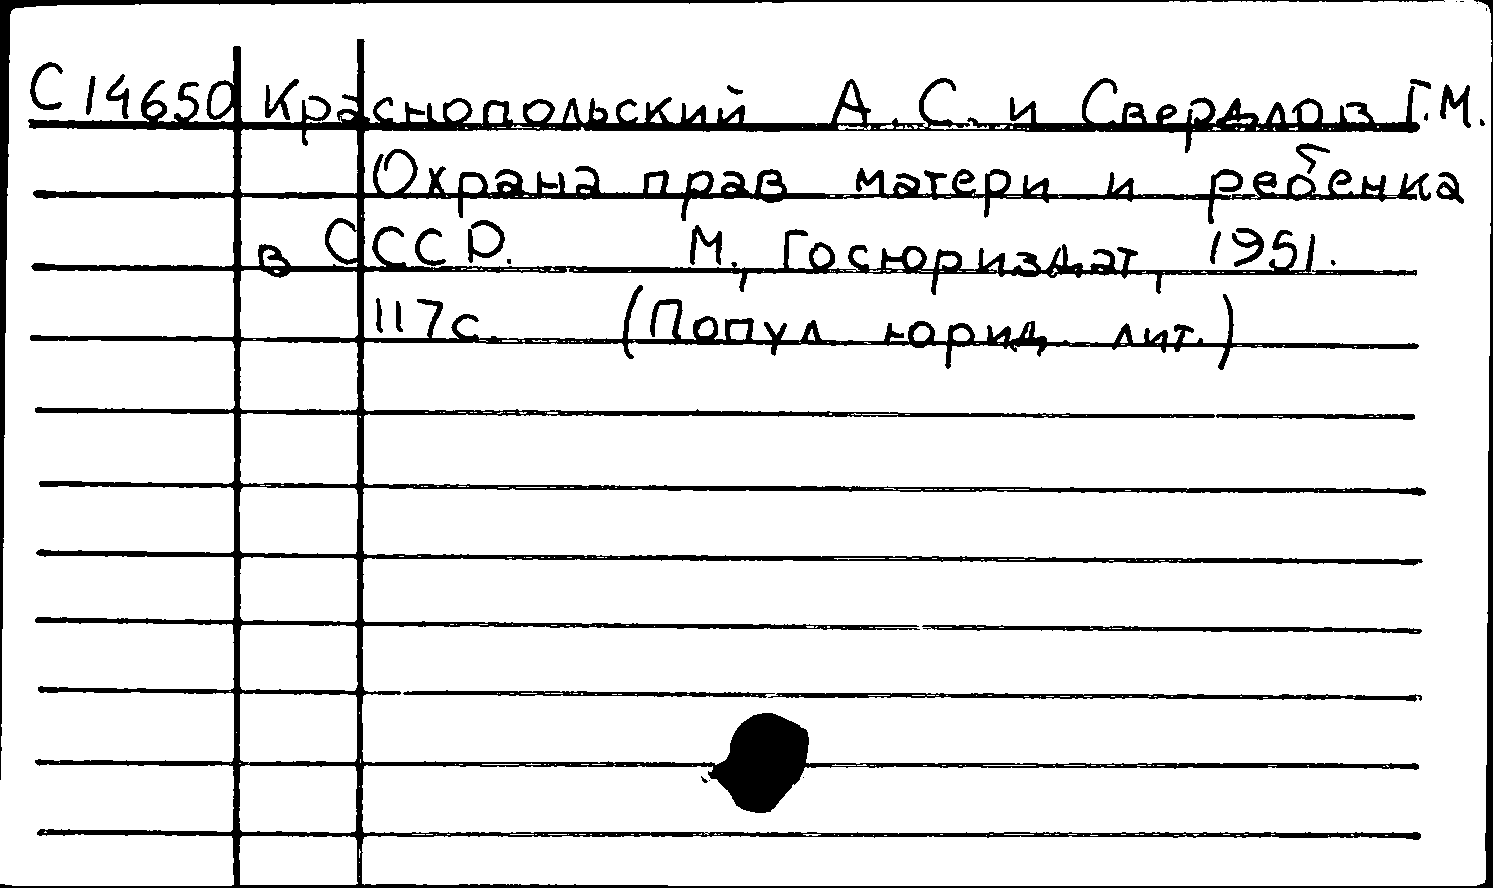 С 14650 Краснопольский А.С. и Свердлов Г.М.
Охрана прав матери и ребенка
в СССР. М., Госюриздат, 1951.
117с. (Попул юрид. лит.)